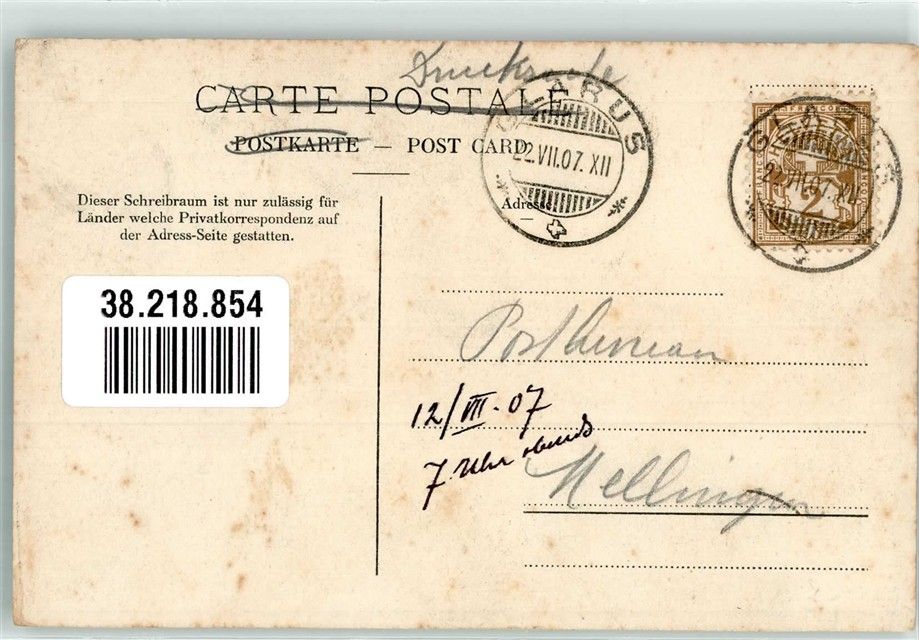 Drucksache
CARTE POSTALE
POSTKARTE — POST CARD
Dieser Schreibraum ist nur zulässig für
Länder welche Privatkorrespondenz auf
der Adress-Seite gestatten.
Adresse
GLARUS
22.VII.07. XII
GLARUS
22.VII.07. XII
FRANCO
2
38.218.854
Postbureau
12/VIII.07
7 Uhr abends
Mellingen